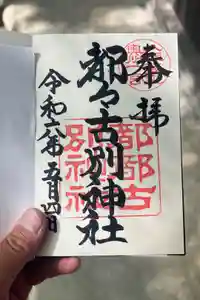 奉拝
都々古別神社
令和六年五月四日
都都古
別神社